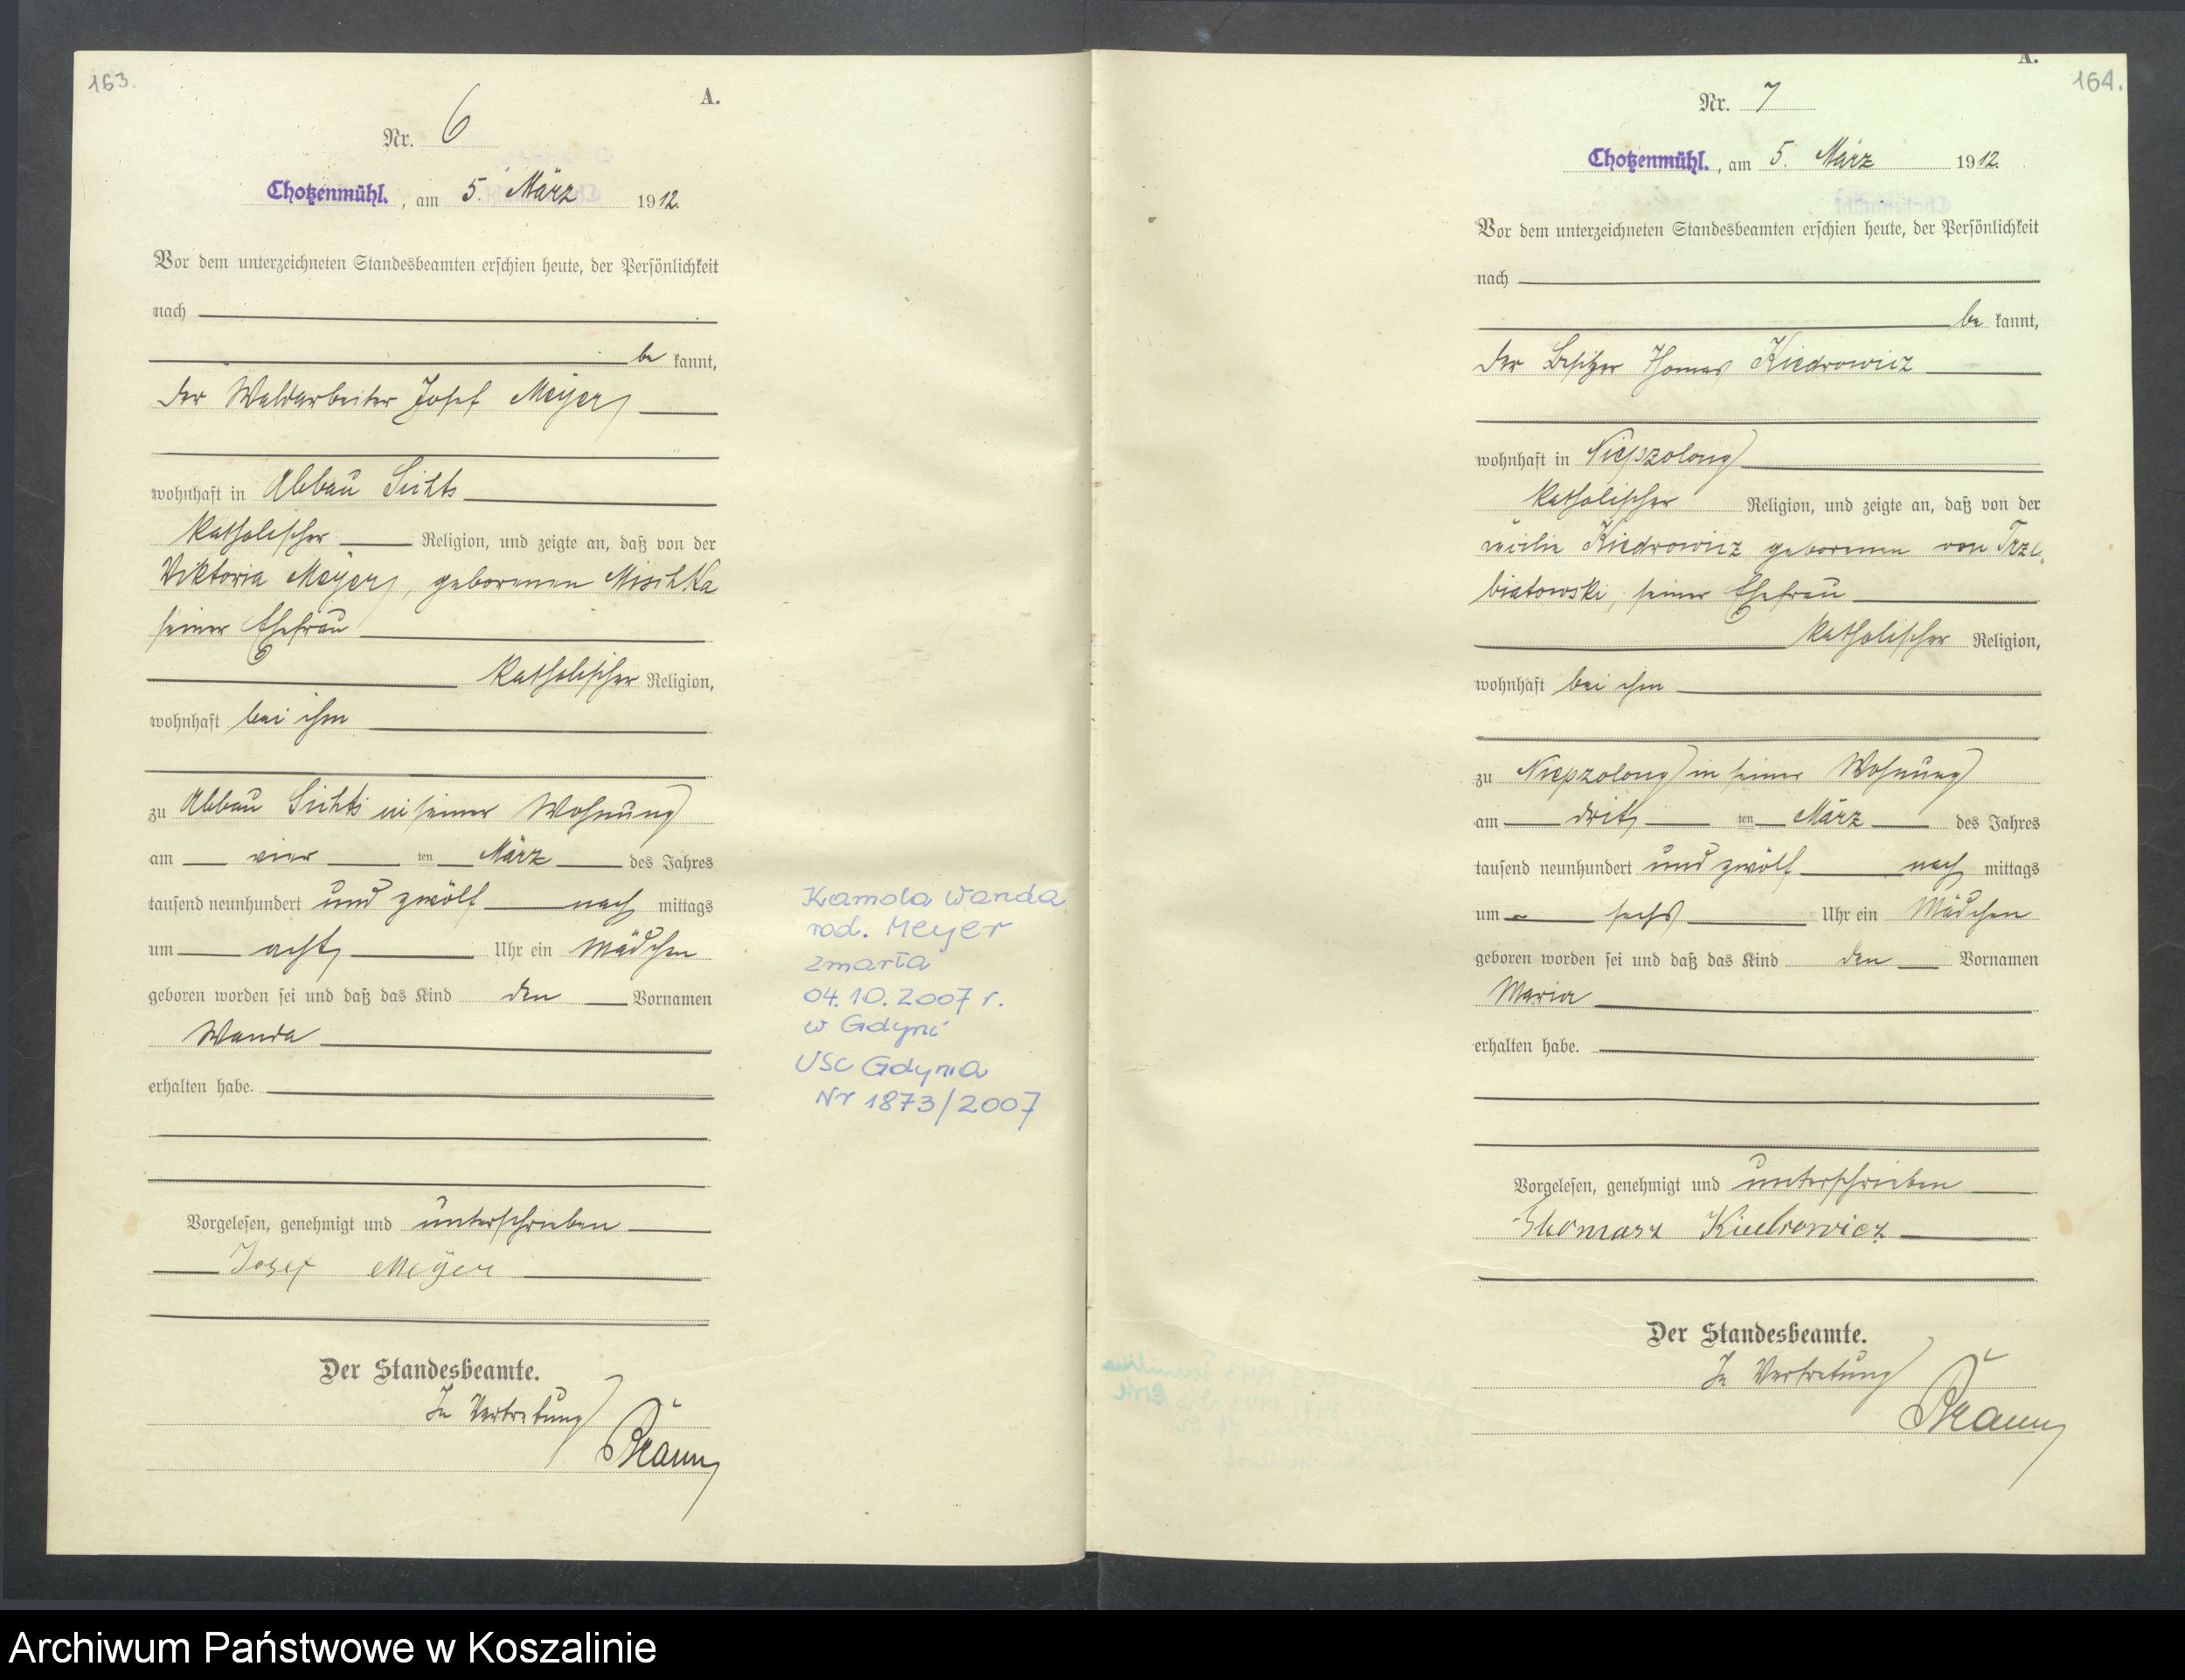 163.
A.
Nr. 6
Chotzenmühl., am 5. März 1912.
Vor dem unterzeichneten Standesbeamten erschien heute, der Persönlichkeit
nach
be kannt,
der Waldarbeiter Josef Meyer
wohnhaft in Abbau Sichts
katholischer Religion, und zeigte an, daß von der
Viktoria Meyer, geborenen Mischka
seiner Ehefrau
katholischer Religion,
wohnhaft bei ihm
zu Abbau Sichts in seiner Wohnung
am vier ten März des Jahres
tausend neunhundert und zwölf nach mittags
um acht Uhr ein Mädchen
geboren worden sei und daß das Kind den Vornamen
Wanda
erhalten habe.
Vorgelesen, genehmigt und unterschrieben
Josef Meyer
Der Standesbeamte.
In Vertretung
Kamola Wanda
rod. Meyer
zmarła
04.10.2007 r.
w Gdyni
USC Gdynia
Nr 1873/2007
A.
164.
Nr. 7
Chotzenmühl., am 5. März 1912.
Vor dem unterzeichneten Standesbeamten erschien heute, der Persönlichkeit
nach
be kannt,
der Besitzer Thomas Kiedrowicz
wohnhaft in Niepzolong
katholischer Religion, und zeigte an, daß von der
Cäcilie Kiedrowicz geborenen von Trze
biatowski, seiner Ehefrau
katholischer Religion,
wohnhaft bei ihm
zu Niepzolong in seiner Wohnung
am drit ten März des Jahres
tausend neunhundert und zwölf nach mittags
um sechs Uhr ein Mädchen
geboren worden sei und daß das Kind den Vornamen
Maria
erhalten habe.
Vorgelesen, genehmigt und unterschrieben
Thomasz Kiedrowicz
Der Standesbeamte.
In Vertretung
Archiwum Państwowe w Koszalinie